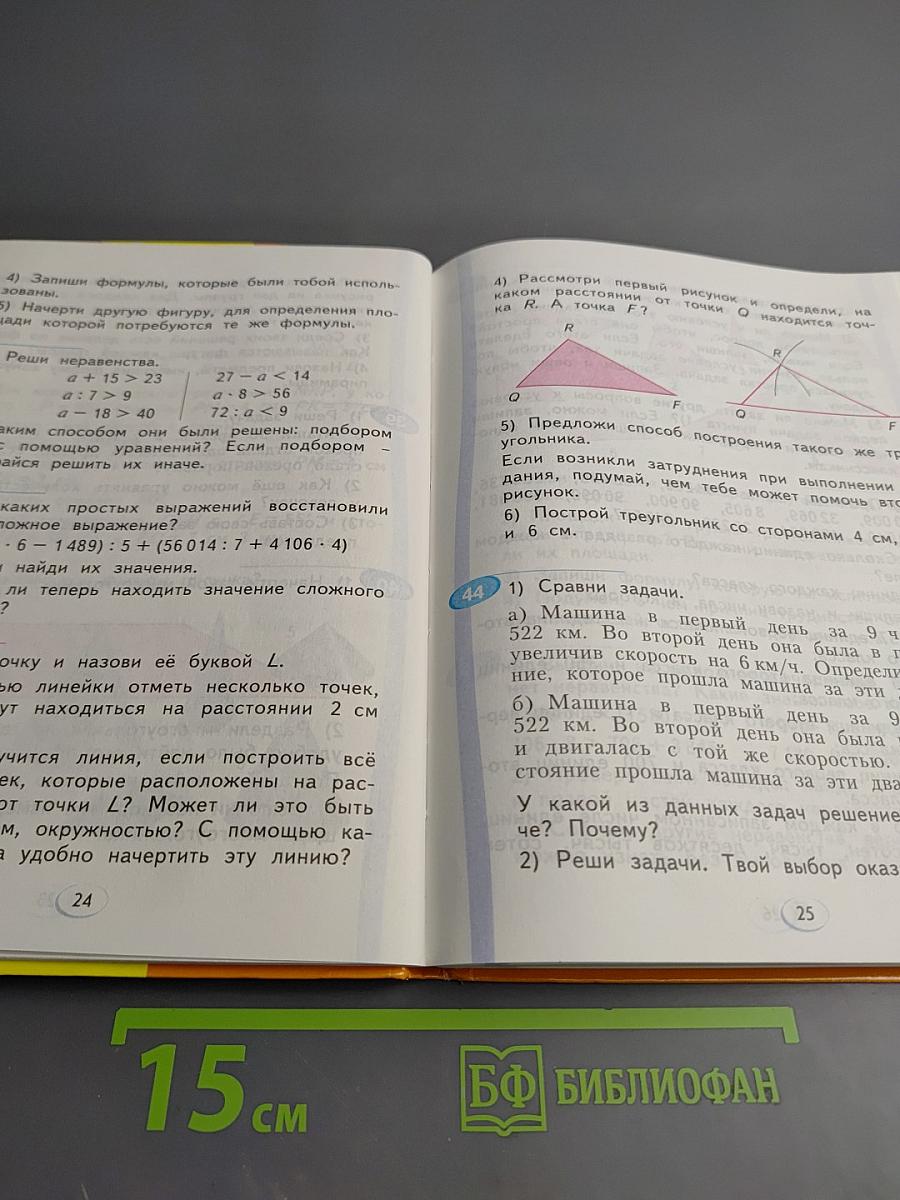 4) Запиши формулы, которые были тобой исполь-
зованы.
5) Начерти другую фигуру, для определения пло-
щади которой потребуются те же формулы.
Реши неравенства.
a + 15 > 23
27 − a < 14
a : 7 > 9
a · 8 > 56
a − 18 > 40
72 : a < 9
аким способом они были решены: подбором
с помощью уравнений? Если подбором –
айся решить их иначе.
каких простых выражений восстановили
ложное выражение?
· 6 − 1 489) : 5 + (56 014 : 7 + 4 106 · 4)
и найди их значения.
ли теперь находить значение сложного
?
очку и назови её буквой L.
ью линейки отметь несколько точек,
ут находиться на расстоянии 2 см
учится линия, если построить всё
ек, которые расположены на рас-
от точки L? Может ли это быть
м, окружностью? С помощью ка-
а удобно начертить эту линию?
24
4) Рассмотри первый рисунок и определи, на
каком расстоянии от точки Q находится точ-
ка R. А точка F?
R
Q
F
R
Q
F
5) Предложи способ построения такого же тр
угольника.
Если возникли затруднения при выполнении
дания, подумай, чем тебе может помочь вто
рисунок.
6) Построй треугольник со сторонами 4 см,
и 6 см.
44
1) Сравни задачи.
а) Машина в первый день за 9 ч
522 км. Во второй день она была в п
увеличив скорость на 6 км/ч. Определи
ние, которое прошла машина за эти
б) Машина в первый день за 9
522 км. Во второй день она была
и двигалась с той же скоростью.
стояние прошла машина за эти два
У какой из данных задач решение
че? Почему?
2) Реши задачи. Твой выбор оказ
25
15 см
БФ БИБЛИОФАН